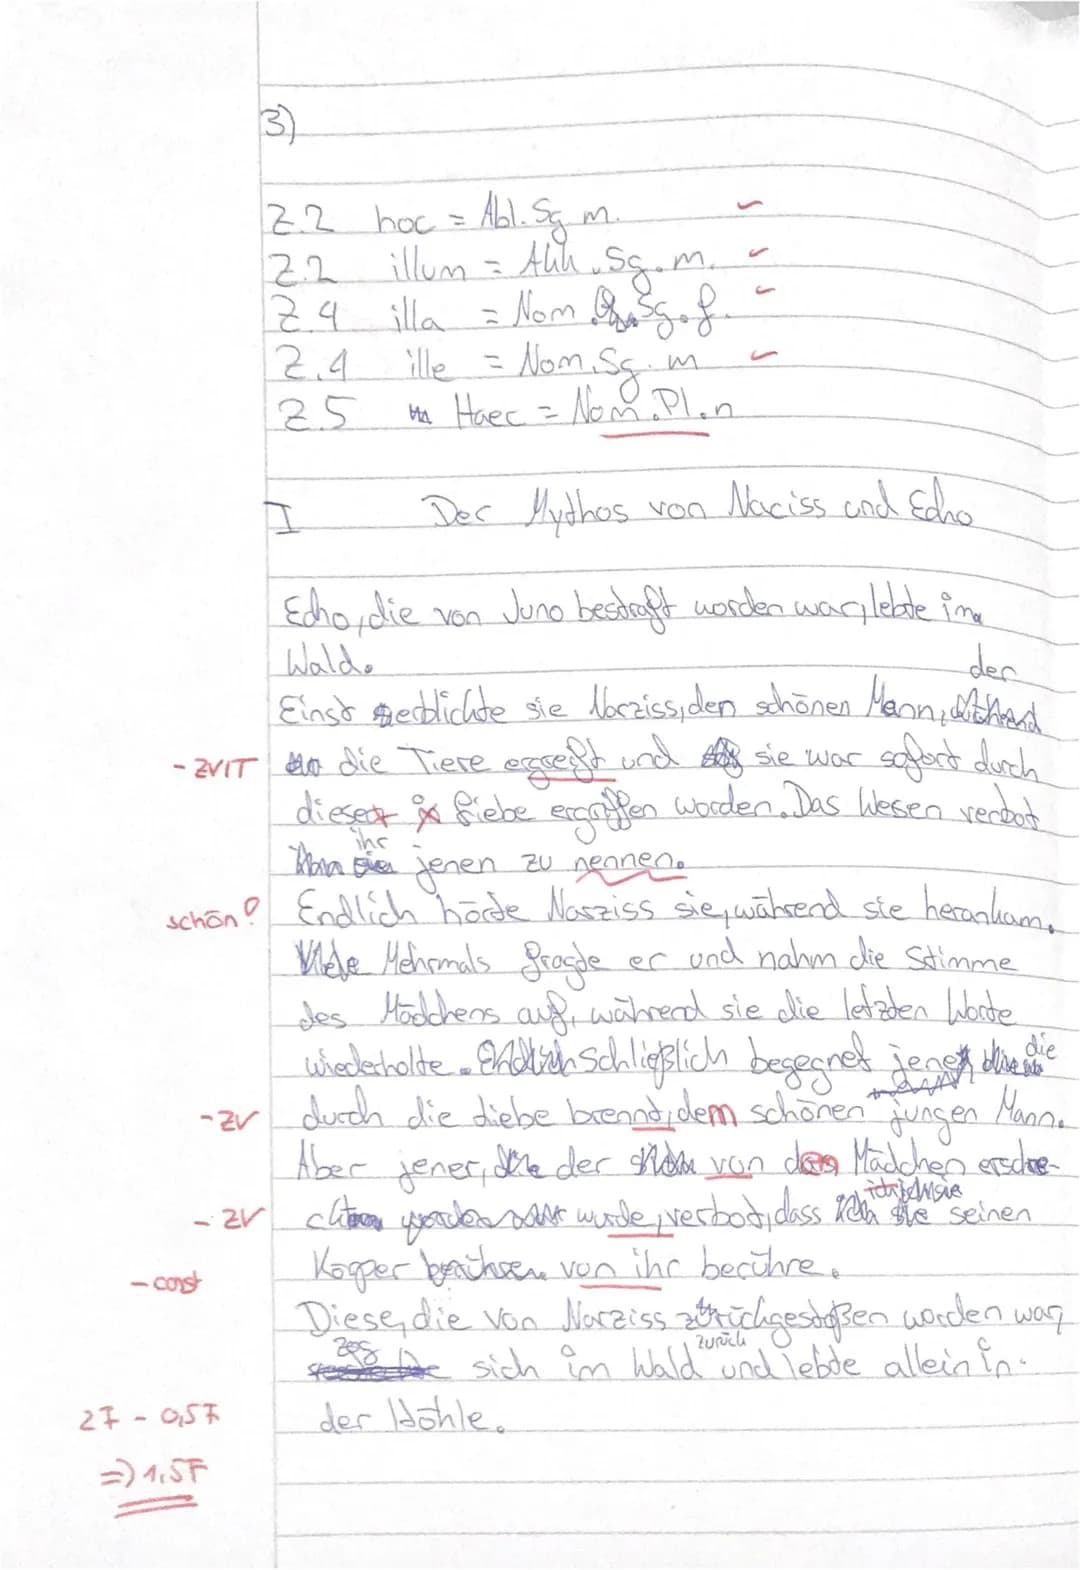 3)
Z.2 hoc = Abl. Sg m.
Z.2 illum = Akk. Sg. m.
Z.4 illa = Nom. Sg. f.
Z.4 ille = Nom. Sg. m
Z.5 Haec = Nom. Pl. n
I Der Mythos von Naciss und Echo
Echo, die von Juno bestraft worden war, lebte im
Wald.
der
Einst erblickte sie Narziss, den schönen Mann,
- ZVIT die Tiere ergreift und sie war sofort durch
diese Liebe ergriffen worden. Das Wesen verbot
ihr
jenen zu nennen.
schön? Endlich hörte Narziss sie, während sie herankam.
Mehrmals fragte er und nahm die Stimme
des Mädchens auf, während sie die letzten Worte
wiederholte. schließlich begegnet jene die
- ZV durch die Liebe brennt, dem schönen jungen Mann.
Aber jener, der von Mädchen erschre-
- ZV wurde, verbot, dass sie seinen
- const Körper von ihr berühre.
Diese, die von Narziss zurückgestoßen worden war,
zog sich im Wald zurück und lebte allein in
2F - 0,5F der Höhle.
=> 1,5F